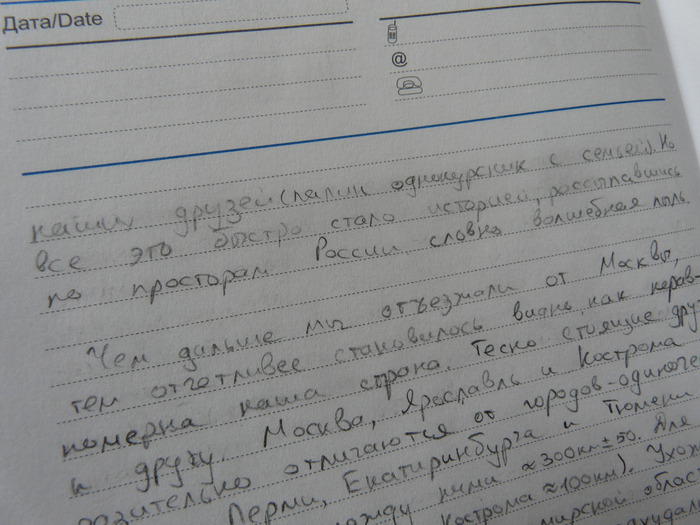 Дата/Date
@
наших друзей (папин однокурсник с семьей). Но
все это быстро стало историей, рассыпавшись
по просторам России, словно волшебная пыль.
Чем дальше мы отъезжали от Москвы,
тем отчетливее становилось видно, как нерав-
номерна наша страна. Тесно стоящие дру
к другу Москва, Ярославль и Кострома
разительно отличаются от городов-одиноче
Перми, Екатеринбурга и Тюмени
между ними ≈300км±50. Для
Кострома ≈100км). Ухож
мирской облас